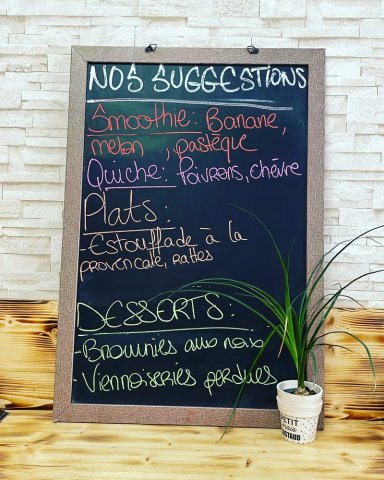 NOS SUGGESTIONS
Smoothie: Banane,
melon , pastèque
Quiche: Poivrons, chèvre
Plats:
- Estouffade à la
provencale, rattes
DESSERTS:
- Brownies aux noix
- Viennoiseries perdues
PETIT
COSTAUD